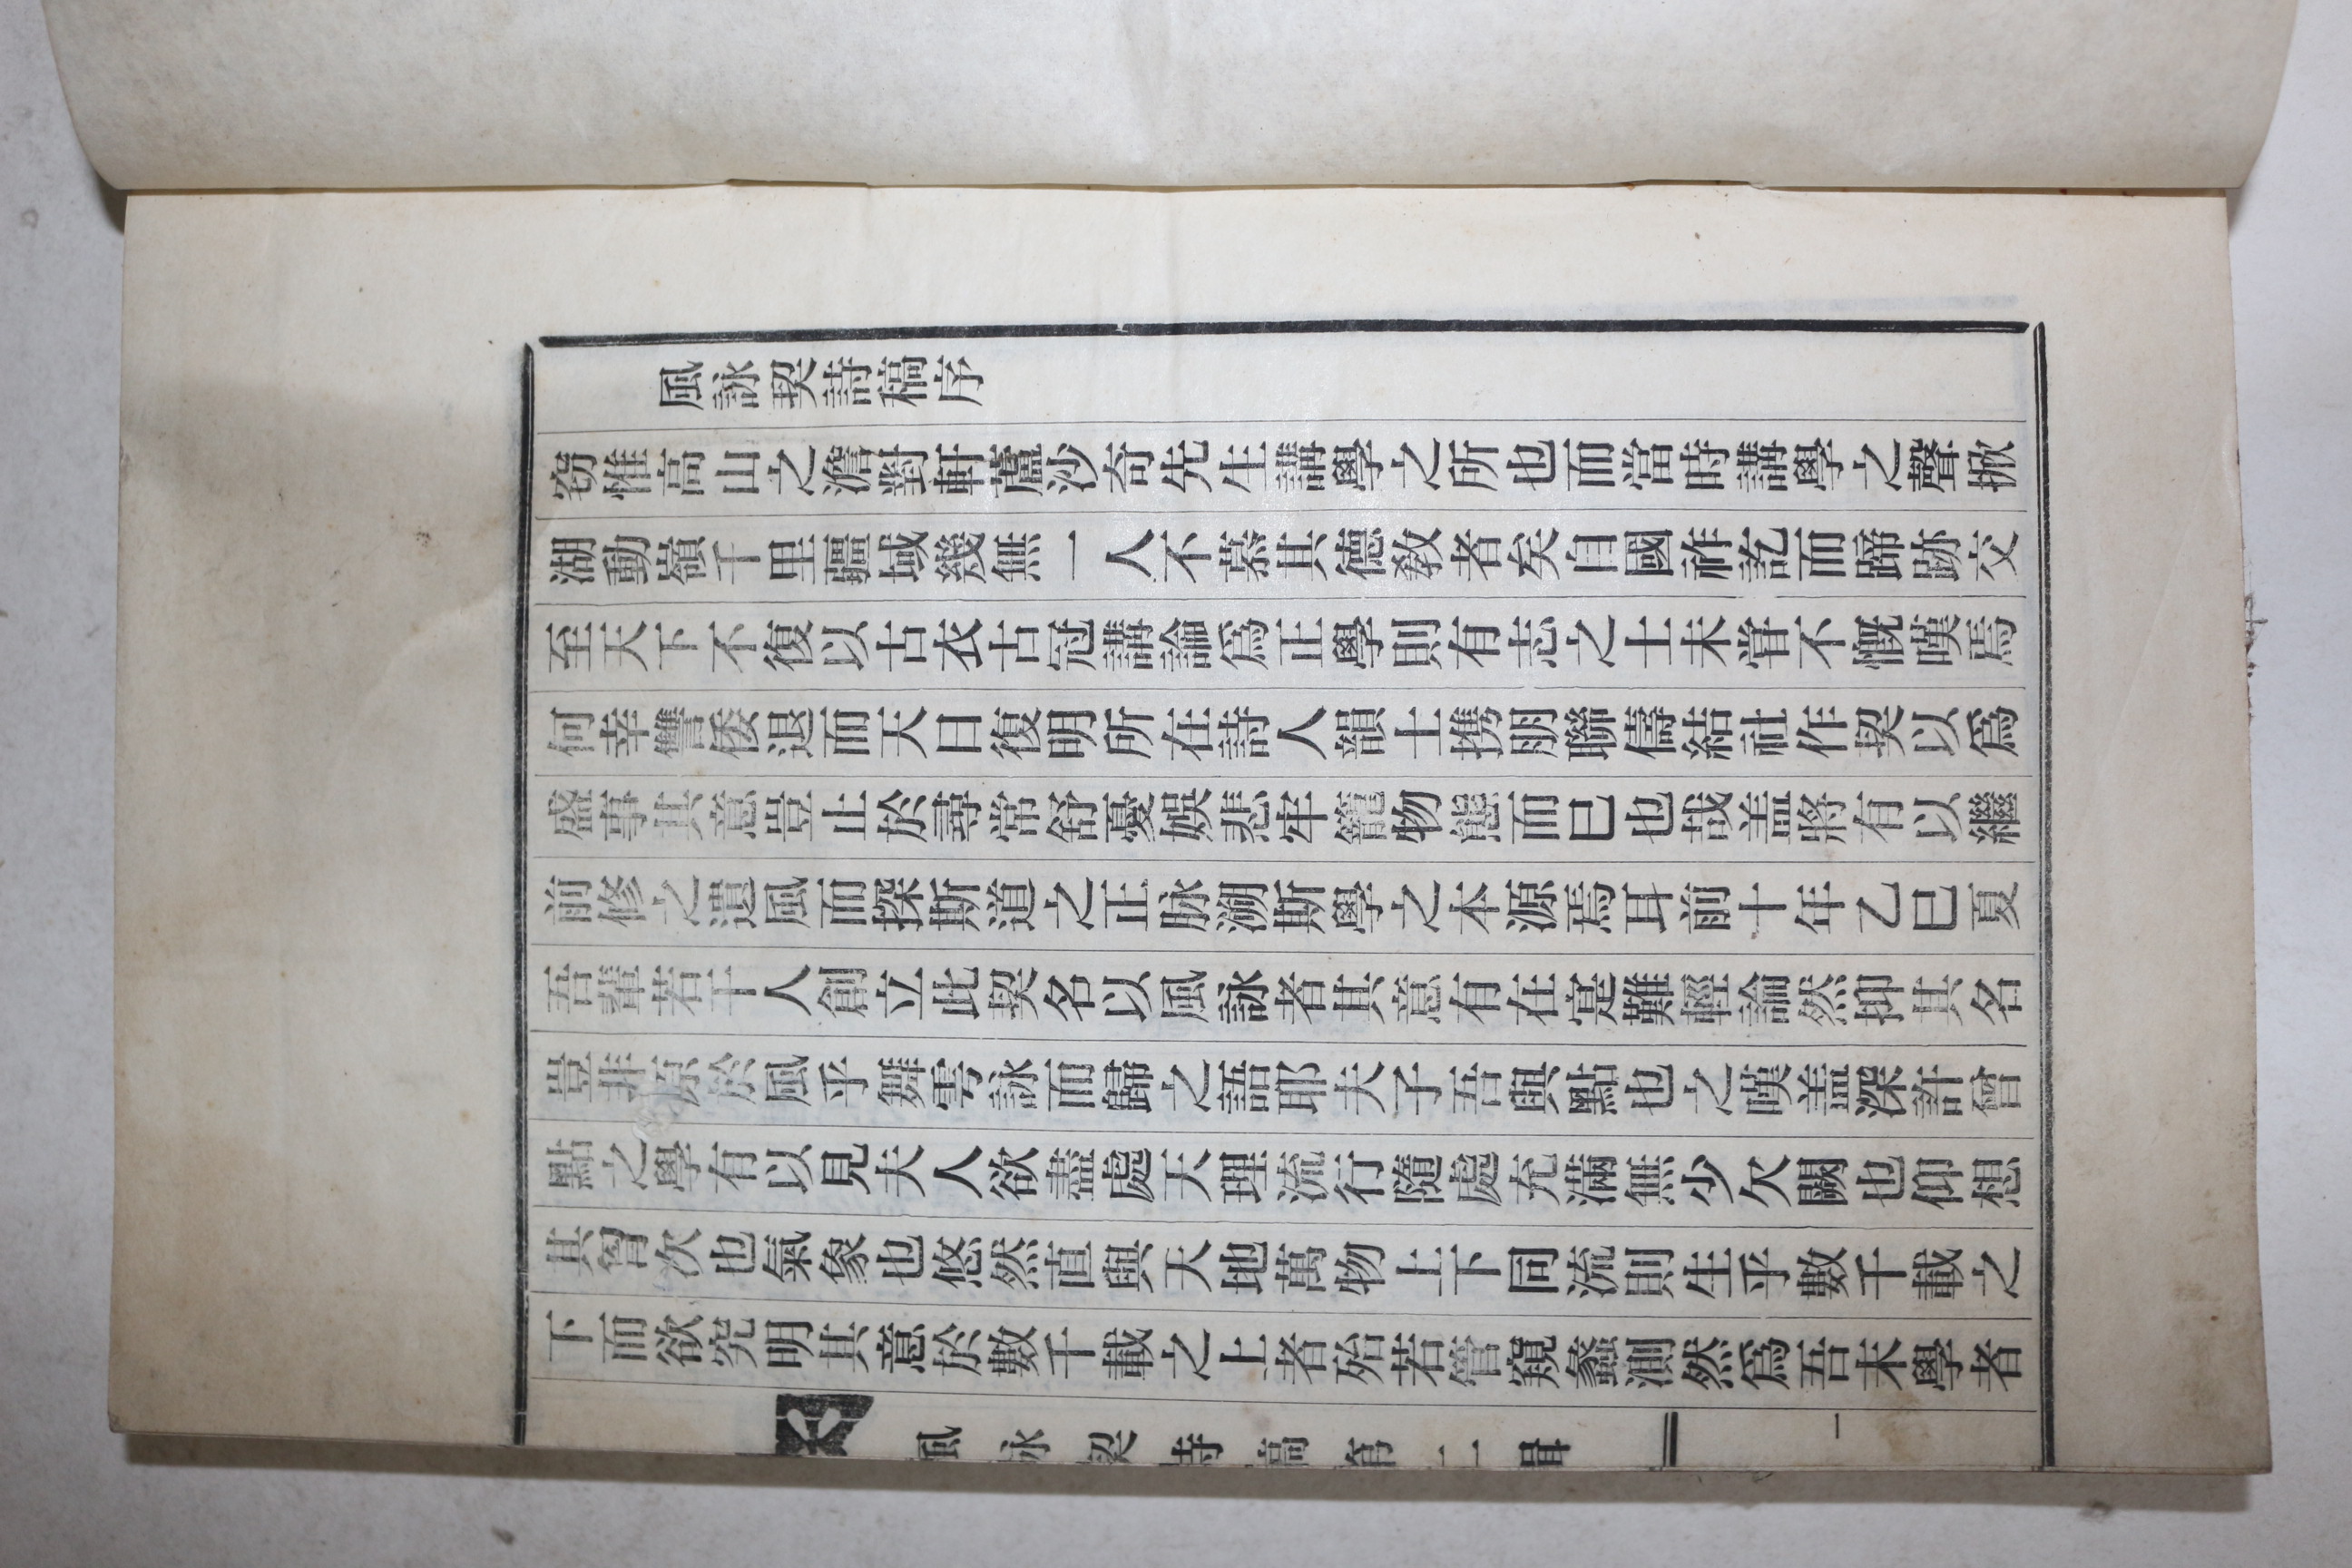 風詠契詩稿序
窃惟高山之澹對軒蘆沙奇先生講學之所也而當時講學之聲掀
湖動嶺千里疆域幾無一人不慕其德敎者矣自國祚訖而蹄跡交
至天下不復以古衣古冠講論爲正學則有志之士未甞不慨嘆焉
何幸讐倭退而天日復明所在詩人韻士携朋聯儔結社作契以爲
盛事其意豈止於尋常舒憂娛悲牢籠物態而巳也哉盖將有以繼
前修之遺風而探斯道之正脉溯斯學之本源焉耳前十年乙巳夏
吾輩若干人創立此契名以風詠者其意有在寔難輕論然抑其名
豈非原於風乎舞雩詠而歸之語耶夫子吾與點也之嘆盖深許曾
點之學有以見夫人欲盡處天理流行隨處充滿無少欠闕也仰想
其胷次也氣象也悠然直與天地萬物上下同流則生乎數千載之
下而欲究明其意於數千載之上者殆若管窺蠡測然爲吾末學者
風詠契詩稿第二輯
一